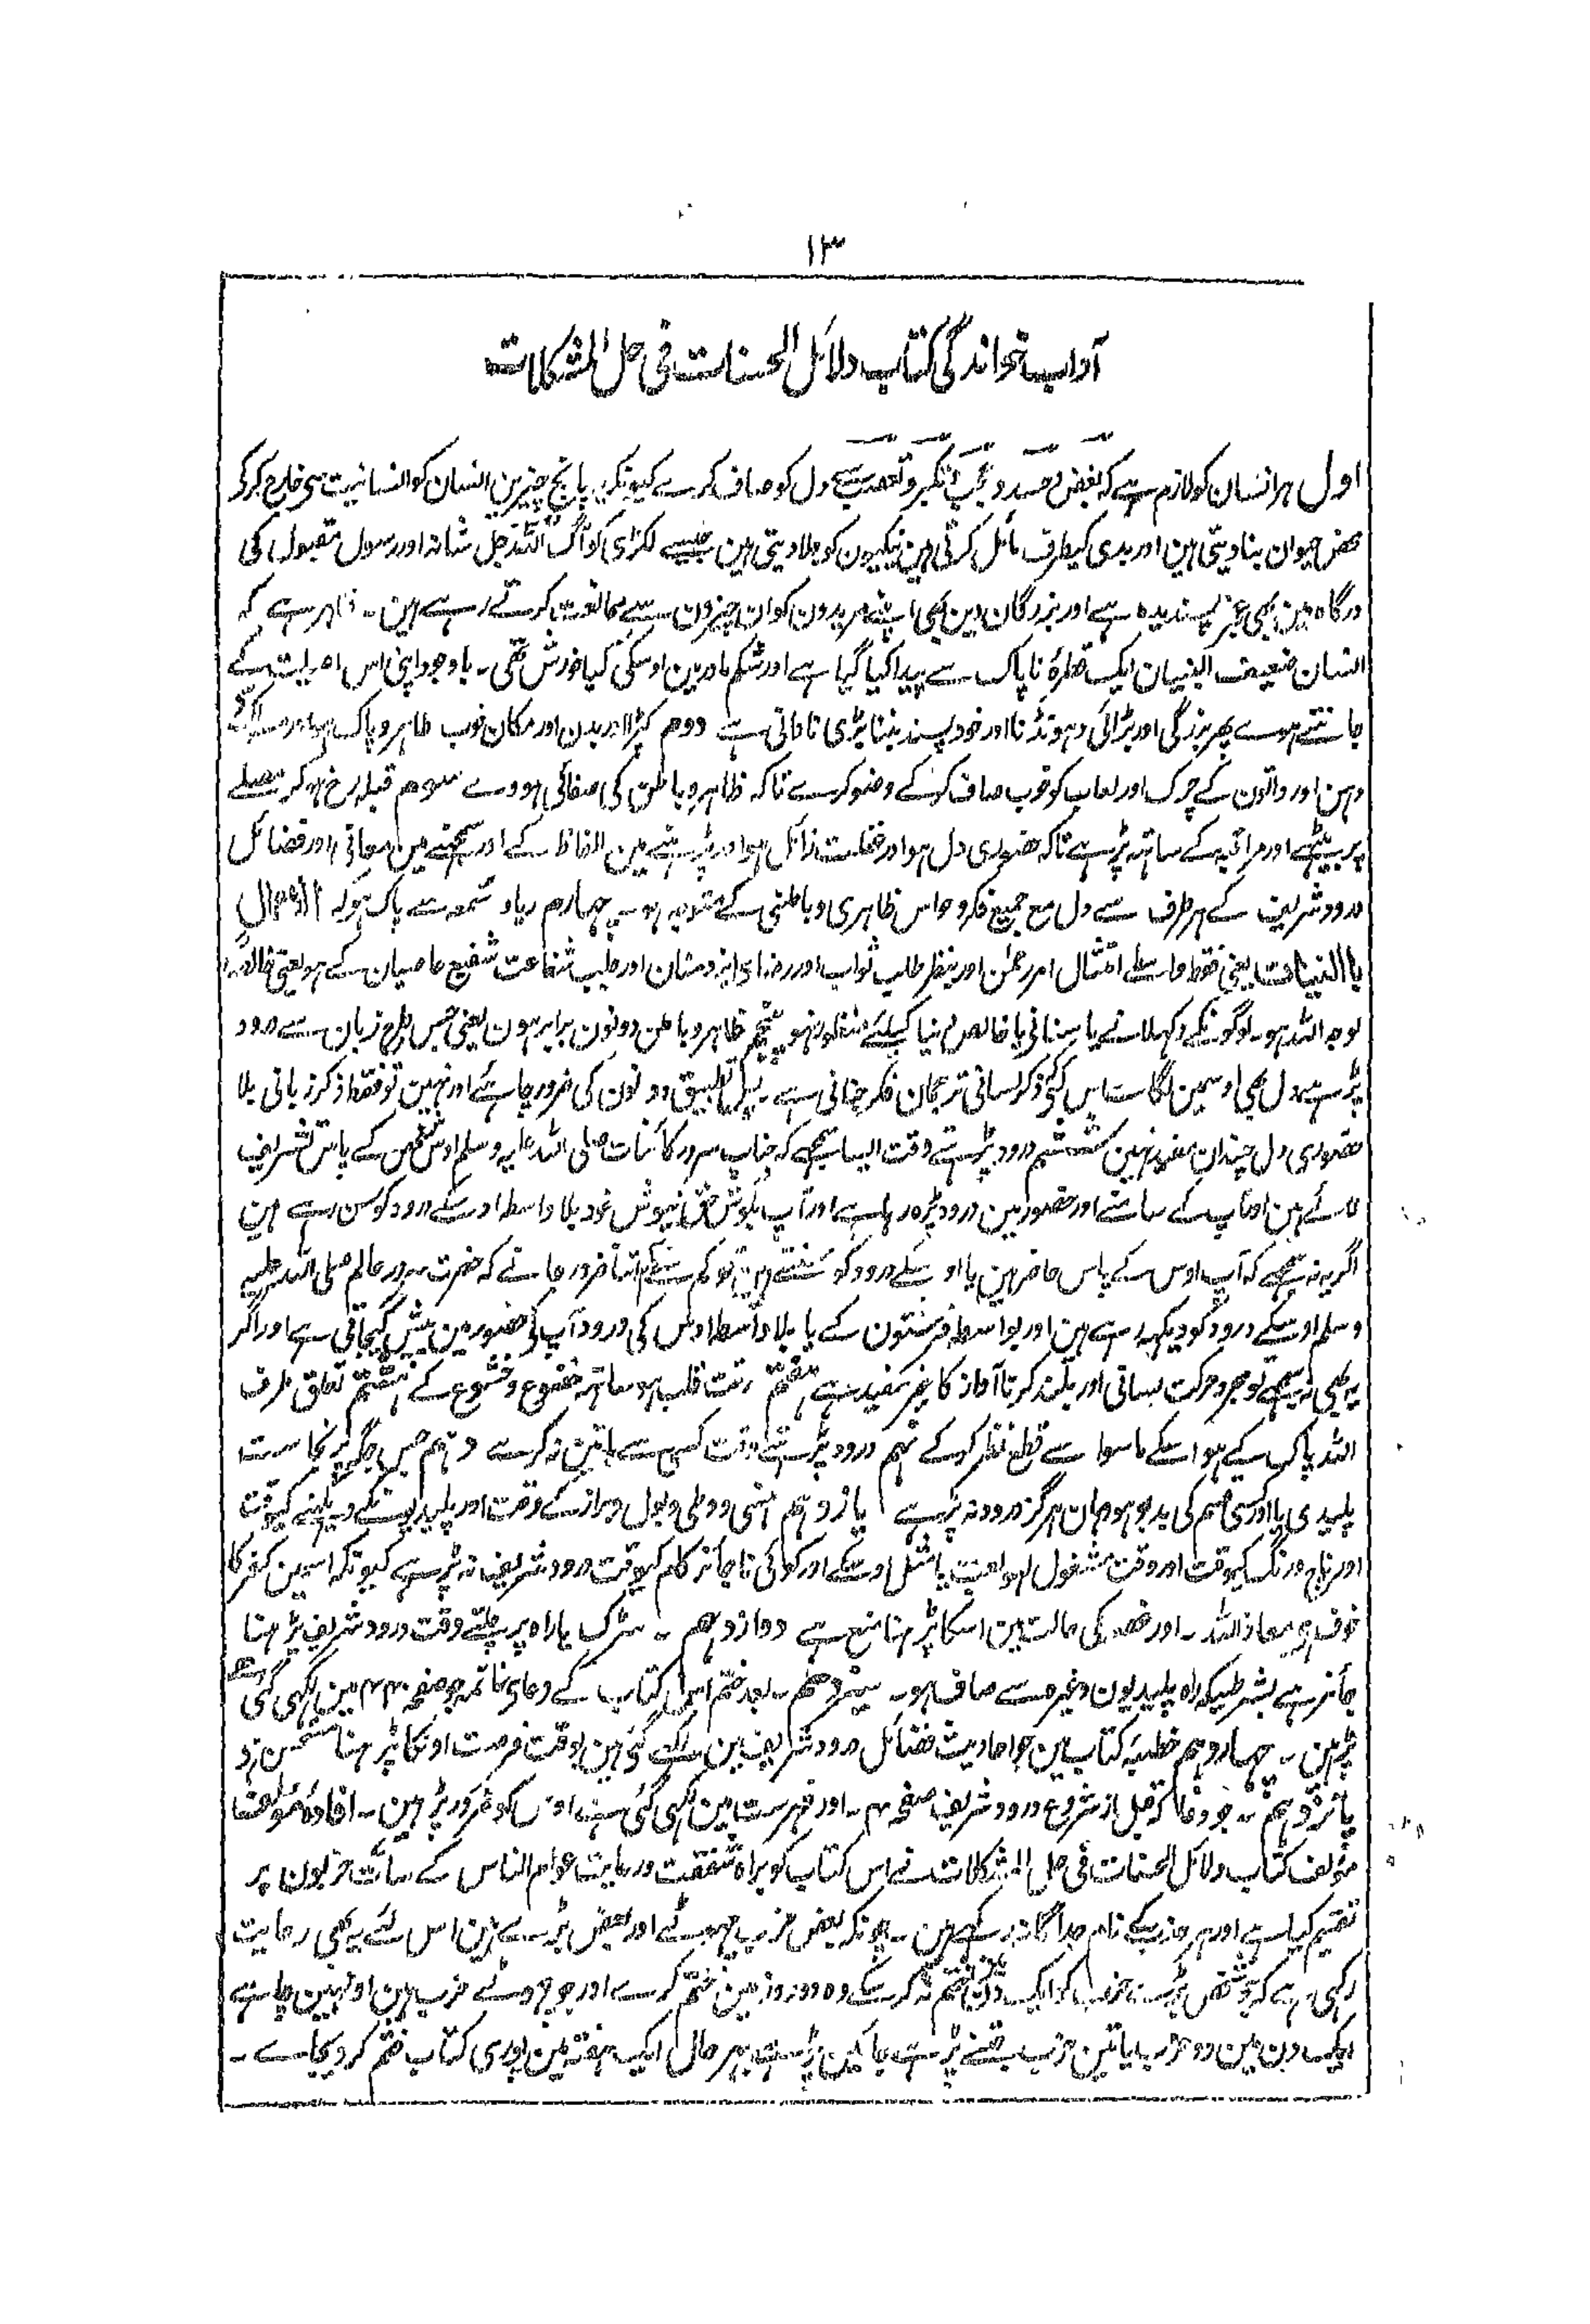 ۱۳
آداب خواندگی کتاب دلائل الحسنات فی حل المشکلات
اول ہر انسان کو لازم ہے کہ بغض و حسد و عجب و تکبر و تعصب سے دل کو صاف کرے کیونکہ یہ پانچ چیزین انسان کو انسانیت سی خارج کرکر
محض حیوان بنا دیتی ہین اور بدی کیطرف مائل کرتی ہین نیکیون کو جلا دیتی ہین جیسے لکڑی کو آگ اللہ جل شانہ اور رسول مقبول کی
درگاہ مین بھی غیر پسندیدہ ہے اور بزرگان دین بھی اپنے مریدون کو ان چیزون سے ممانعت کرتے رہے ہین ۔ ظاہر ہے کہ
انسان ضعیف البنیان ایک قطرۂ ناپاک سے پیدا کیا گیا ہے اور شکم مادر مین اوسکی کیا خورش تھی ۔ باوجود اپنی اس اصلیت کے
جانتے ہوے پھر بزرگی اور بڑائی ڈہونڈنا اور خود پسند بننا بڑی نادانی ہے دوم کپڑا اور بدن اور مکان خوب طاہر و پاک ہو اور مسواک سے
دہن اور دانتون کے چرک اور لعاب کو خوب صاف کرکے وضو کرے تاکہ ظاہر و باطن کی صفائی ہووے سوم قبلہ رخ ہوکر مصلے
پر بیٹھے اور مراقبہ کے ساتھ پڑہے تاکہ حضوری دل ہو اور غفلت زائل ہو اور پڑہنے مین الفاظ کے اور سمجھنے مین معانی اور فضائل
درود شریف کے ہر طرف سے دل مع جمیع فکر و حواس ظاہری و باطنی کے متوجہ ہو ۔ چہارم ریا و سمعہ سے پاک ہو کہ الاعمال
بالنیات یعنی فقط واسطے امتثال امر رحمٰن اور بنظر طلب ثواب اور رضای ایزد منان اور طلب شفاعت شفیع عاصیان کے ہو یعنی خالصاً
لوجہ اللہ ہو ۔ لوگونکے دکہلانے یا سنانی یا خالص دنیا کیلئے منظور نہو پنجم ظاہر و باطن دونون برابر ہون یعنی جس طرح زبان سے درود
پڑہے دل بھی اوسمین لگا اس کی ذکر لسانی ترجمان فکر جنانی ہے ۔ پس تطبیق دونون کی ضرور چاہئے اور نہین تو فقط ذکر زبانی بلا
حضوری دل چندان مفید نہین ششم درود پڑہتے وقت ایسا سمجھے کہ جناب سرور کائنات صلی اللہ علیہ وسلم اوس شخص کے پاس تشریف
لائے ہین اور آپ کے سامنے اور حضور مین درود پڑہ رہا ہے اور آپ بگوش حق نیوش خود بلا واسطہ اوسکے درود کو سن رہے ہین
اگر یہ نہ سمجھے کہ آپ اوس کے پاس حاضر ہین یا اوسکے درود کو سنتے ہین تو کم سے کم اتنا ضرور جانے کہ حضرت سرور عالم صلی اللہ علیہ
وسلم اوسکے درود کو دیکھہ رہے ہین اور بواسطہ فرشتون کے یا بلا واسطہ اوس کی درود آپ کی حضور مین پیش کیجاتی ہے اور اگر
یہ بھی نہ سمجھے تو مجرد حرکت لسانی اور بلند کرنا آواز کا غیر مفید ہے ہفتم رقت قلب ہو ساتھہ خضوع و خشوع کے ہشتم تعلق طرف
اللہ پاک کے ہو اسکے ماسوا سے قطع نظر کرکے نہم درود پڑہتے وقت کسی سے باتین نہ کرے دہم جس جگہ پر نجاست
پلیدی یا اور کسی قسم کی بدبو ہو وہان ہرگز درود نہ پڑہے یازدہم ہنسی و وطی و بول و براز کے وقت اور پلید دیکہنے کیوقت
اور ناچ و رنگ کیوقت اور وقت مشغول لہو لعب یا مثل اوسکے اور کوئی ناجائز کام کیوقت درود شریف نہ پڑہے کیونکہ اسمین کفر کا
خوف ہی معاذ اللہ ۔ اور غصہ کی حالت مین اسکا پڑہنا منع ہے دوازدہم ۔ سڑک یا راہ پر چلتے وقت درود شریف پڑہنا
جائز ہے بشرطیکہ راہ پلیدیون وغیرہ سے صاف ہو ۔ سیزدہم ۔ بعد ختم اس کتاب کے دعای خاتمہ جو صفحہ مین لکہی گئی ہے
پڑہین ۔ چہاردہم خطبۂ کتاب مین جو احادیث فضائل درود شریف مین لکہے گئی ہین بوقت فرصت اونکا پڑہنا مستحسن ہے
پانزدہم ۔ جو دعا کہ قبل از شروع درود شریف صفحہ ۔ اور فہرست مین لکہی گئی ہے اوس کو ضرور پڑہین ۔ افادۂ مؤلف
مؤلف کتاب دلائل الحسنات فی حل المشکلات نے اس کتاب کو براہ شفقت و رعایت عوام الناس کے سات حزبون پر
تقسیم کیا ہے اور ہر حزبکے نام جداگانہ رکہے ہین ۔ چونکہ بعض حزب چہوٹے اور بعض بڑے ہین اس لئے یہ بھی رعایت
رکہی ہے کہ جو شخص بڑے حزب کو ایک روز مین ختم نہ کرسکے وہ دو روز مین ختم کرے اور جو چہوٹے حزب ہین اونہین چاہے
ایک دن مین دو حزب یا تین حزب جتنے پڑہے جا سکین پڑہے بہرحال ایک ہفتہ مین پوری کتاب ختم کردیجاے ۔